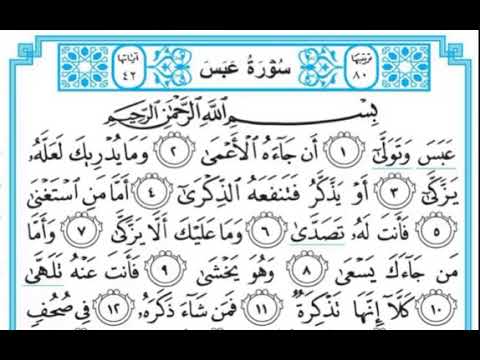 ترتيبها ٨٠ سُورَةُ عَبَسَ آياتها ٤٢
بِسْمِ اللَّهِ الرَّحْمَٰنِ الرَّحِيمِ
عَبَسَ وَتَوَلَّىٰٓ ١ أَن جَآءَهُ الْأَعْمَىٰ ٢ وَمَا يُدْرِيكَ لَعَلَّهُۥ
يَزَّكَّىٰٓ ٣ أَوْ يَذَّكَّرُ فَتَنفَعَهُ الذِّكْرَىٰٓ ٤ أَمَّا مَنِ اسْتَغْنَىٰ
٥ فَأَنتَ لَهُۥ تَصَدَّىٰ ٦ وَمَا عَلَيْكَ أَلَّا يَزَّكَّىٰ ٧ وَأَمَّا
مَن جَآءَكَ يَسْعَىٰ ٨ وَهُوَ يَخْشَىٰ ٩ فَأَنتَ عَنْهُ تَلَهَّىٰ
١٠ كَلَّآ إِنَّهَا تَذْكِرَةٌ ١١ فَمَن شَآءَ ذَكَرَهُۥ ١٢ فِى صُحُفٍ